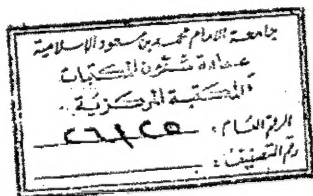 جامعة الإمام محمد بن سعود الإسلامية
عمادة شئون المكتبات
المكتبة المركزية
الرقم العام :
رقم التصنيف :